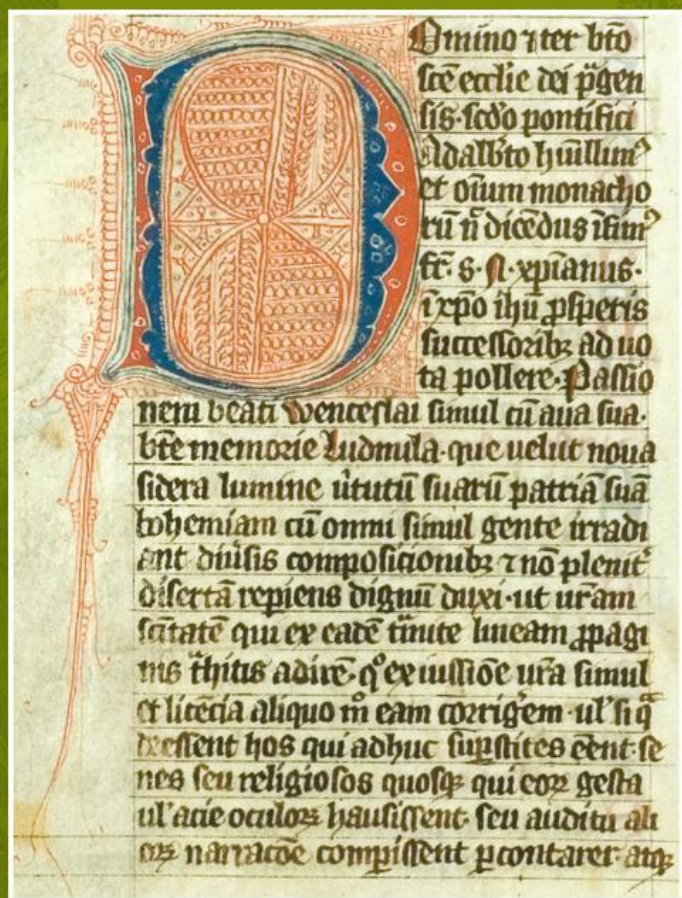 Domino ⁊ ter bt̄o
sc̄e eccl̄ie dei p̄gen
sis· scd̄o pontifici
Adalb̄to hūillim᷒
et om̄ium monacho
rū n̄ dicēdus īfim᷒
fr̄· s· N· xp̄ianus·
ī xp̄o ihū ꝓsperis
successoribꝫ ad uo
ta pollere· Passio
nem beati Wenceslai simul cū aua sua·
bt̄e memorie Ludmila· que uelut noua
sidera lumine ūtutū suarū patriā suā
bohemiam cū omni simul gente irradi
ant diūsis composicionibꝫ ⁊ nō plenit᷑
disertā rep̄iens dignū duxi· ut ur̄am
sc̄itatē qui ex eadē t̄mite lineam ꝓpagi
nis t̄hitis adirē· qͦ ex iussiōe ur̄a simul
et licēcia aliquo mͦ eam corriḡem· ul̓ si qͣ
deessent hos qui adhuc sup̄stites eēnt· se
nes seu religiosos quosqꝫ qui eoꝝ gesta
ul̓ acie oculoꝝ hausissent· seu auditu ali
oꝝ narracōe comp̄issent p̄contarer· atqꝫ